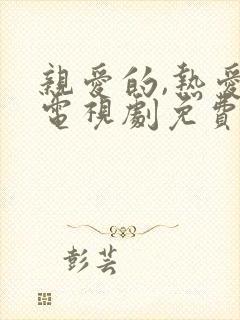 親愛的,熱愛
電視劇免費
彭芸